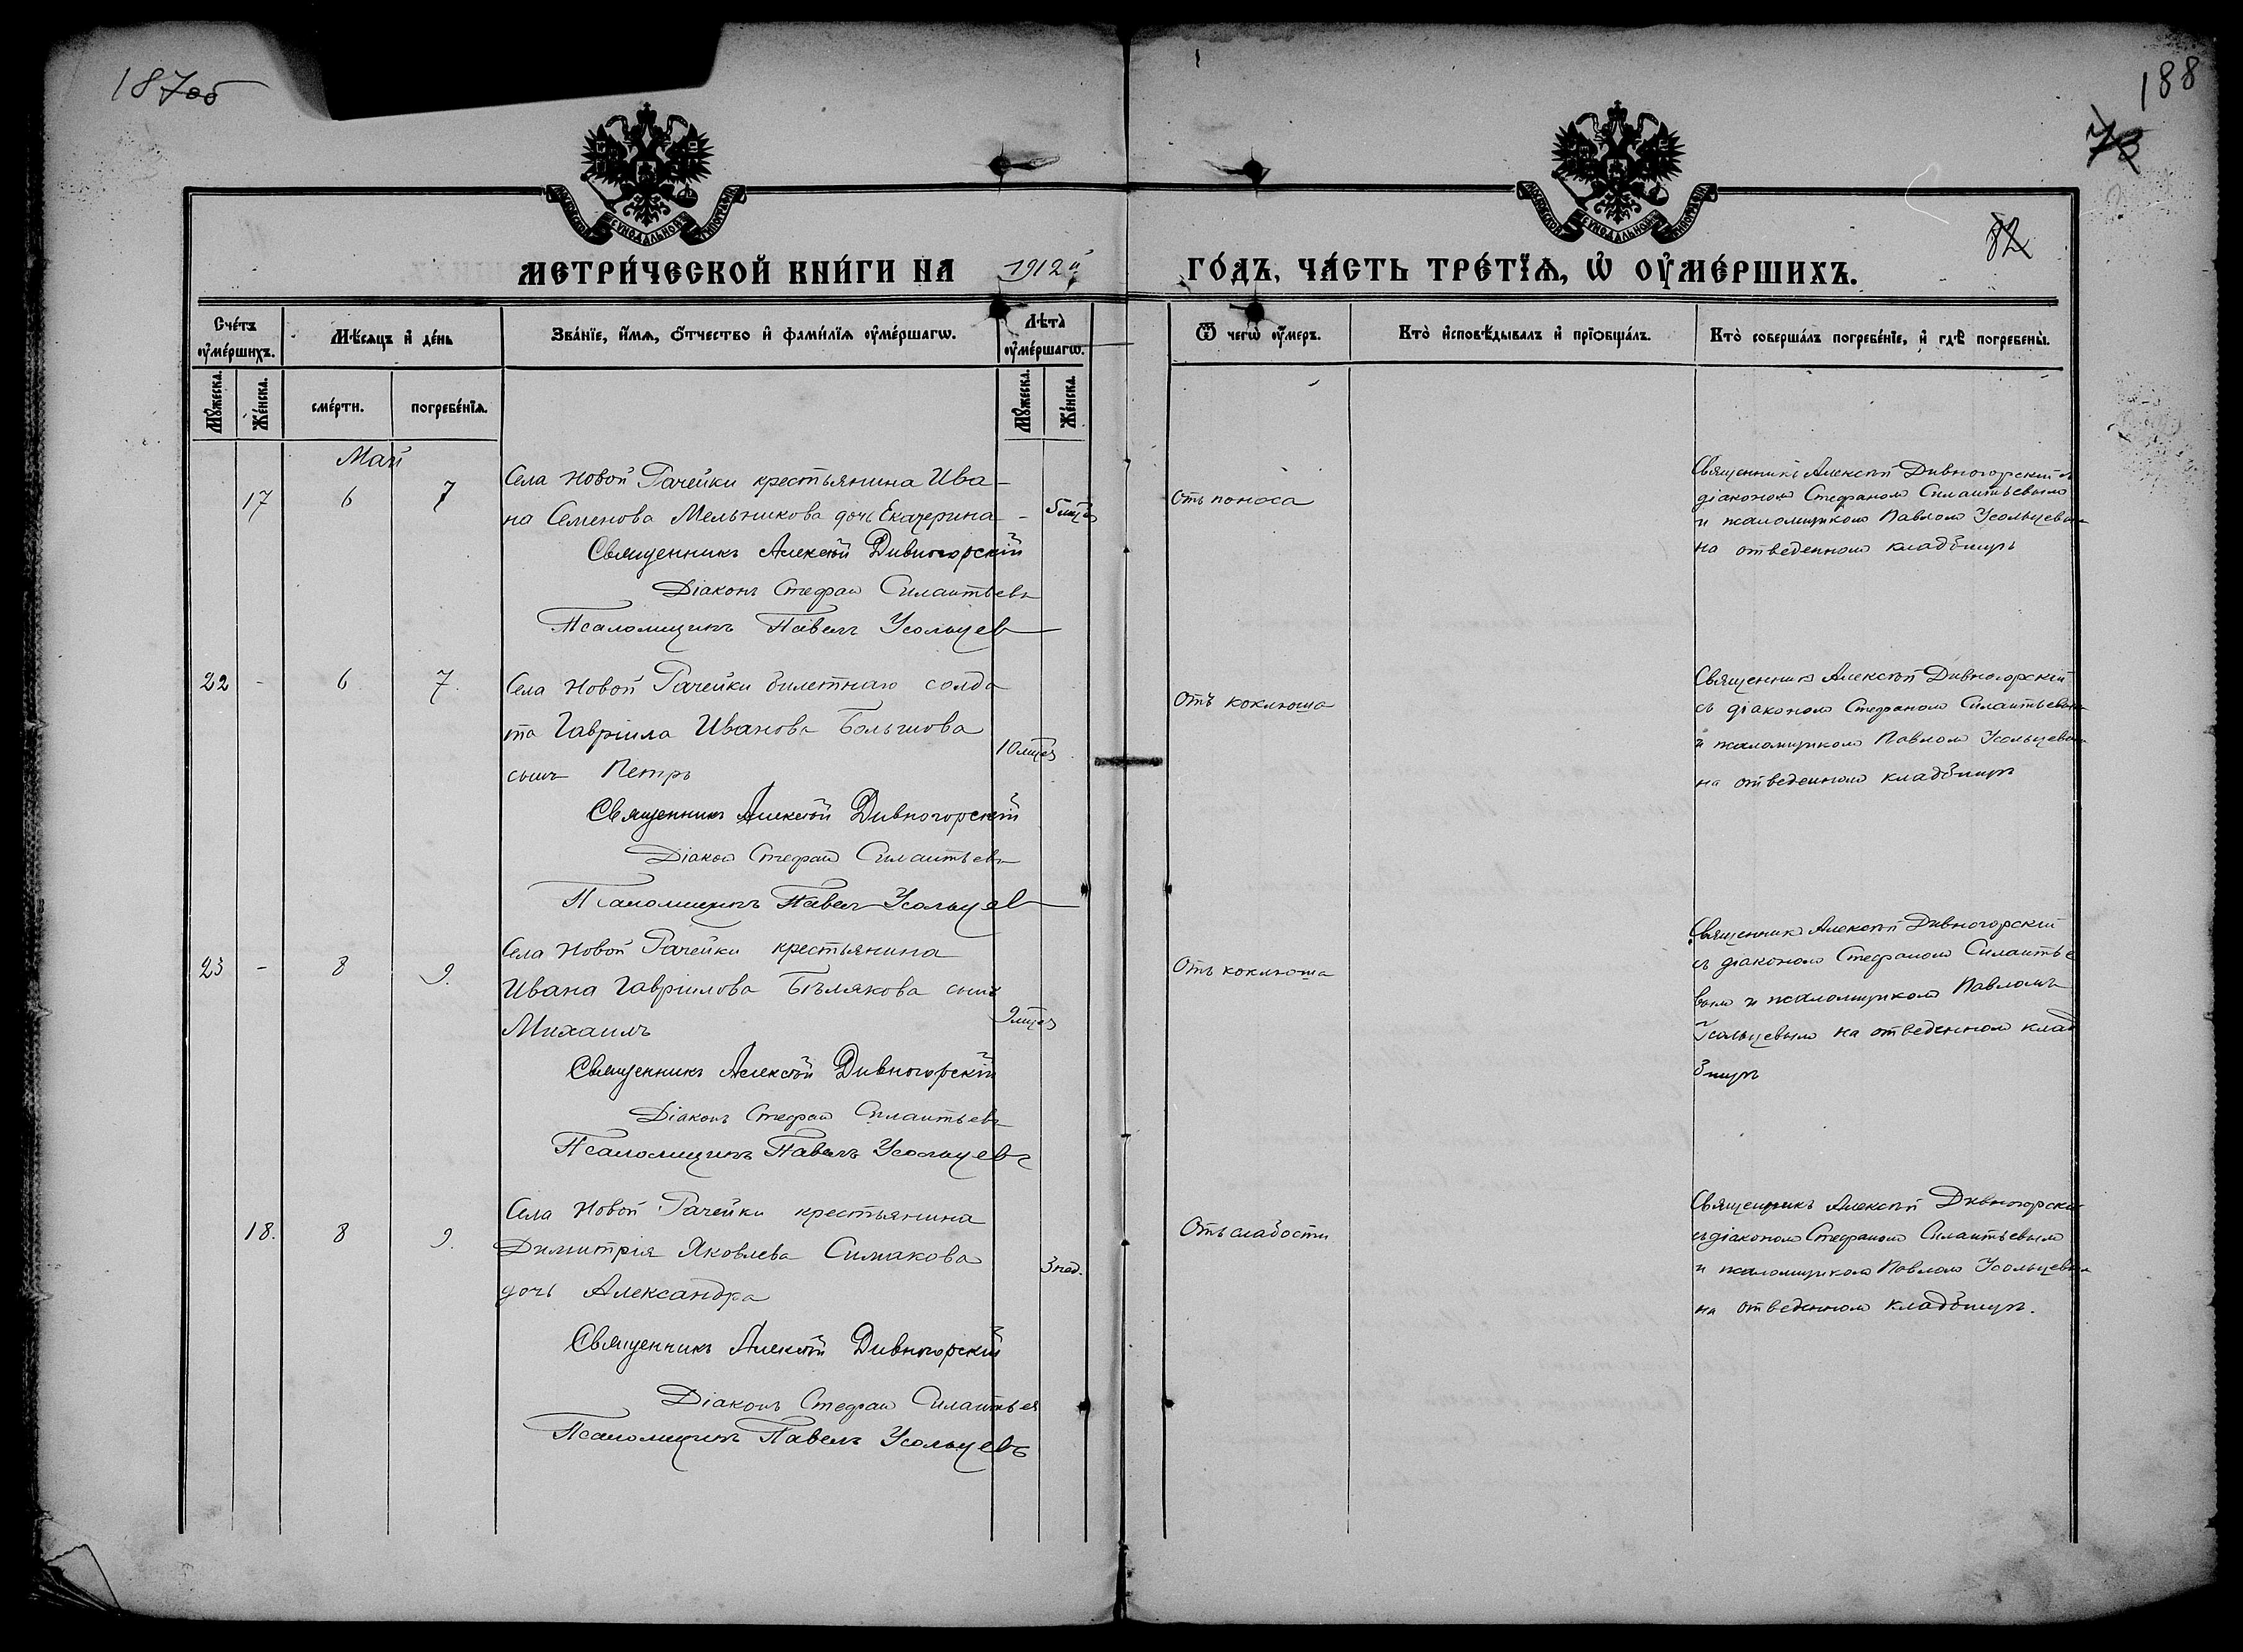 187об
188
73
82
МЕТРИ́ЧЕСКОЙ КНИ́ГИ НА 1912й ГО́ДЪ, ЧА́СТЬ ТРЕ́ТІѦ, Ѡ ОУМЕ́РШИХЪ.
Сче́тъ оуме́ршихъ.
Мѣ́сяцъ и де́нь
Зва́нїе, и́мѧ, ѻ́тчество и фамѝлїѧ оуме́ршагѡ.
Лѣта̀ оуме́ршагѡ.
Ѿ чегѡ̀ оу́меръ.
Кто̀ исповѣ́дывалъ и прїѡбща́лъ.
Кто̀ соверша́лъ погребе́нїе, и гдѣ̀ погребены̀.
Мꙋ́жеска.
Же́нска.
сме́рти.
погребе́нїѧ.
Мꙋ́жеска.
Же́нска.
Май
17 6 7
Села Новой Рачейки крестьянина Ива-
на Семенова Мельникова дочь Екатерина - 5 мцев
Священникъ Алексѣй Дивногорскій
Діаконъ Стефан Силантьевъ
Псаломщикъ Павелъ Усольцев
Отъ поноса
Священникъ Алексѣй Дивногорскій съ
діаконом Стефаном Силантьевым
и псаломщиком Павлом Усольцевым
на отведенном кладбищѣ
22 - 6 7.
Села Новой Рачейки билетнаго солда
та Гавріила Иванова Большова
сынъ Петръ
10 мцев
Священникъ Алексѣй Дивногорскій
Діакон Стефан Силантьевъ
Псаломщикъ Павел Усольцев
Отъ коклюша
Священникъ Алексѣй Дивногорскій
съ діаконом Стефаном Силантьевым
и псаломщиком Павлом Усольцевым
на отведенном кладбищѣ
23 - 8 9.
Села Новой Рачейки крестьянина
Ивана Гавріилова Бѣлякова сынъ
Михаилъ
9 мцев
Священникъ Алексѣй Дивногорскій
Діаконъ Стефан Силантьевъ
Псаломщикъ Павелъ Усольцевъ
Отъ коклюша
Священник Алексѣй Дивногорскій
съ діаконом Стефаном Силантье
вым и псаломщиком Павломъ
Усольцевым на отведенном клад
бищѣ
18. 8 9.
Села Новой Рачейки крестьянина
Димитрія Яковлева Симакова
дочь Александра
3 нед.
Священникъ Алексѣй Дивногорскій
Діаконъ Стефан Силантьев
Псаломщикъ Павелъ Усольцевъ
Отъ слабости
Священникъ Алексѣй Дивногорскій
съ діаконом Стефаном Силантьевым
и псаломщиком Павлом Усольцевым
на отведенном кладбищѣ.